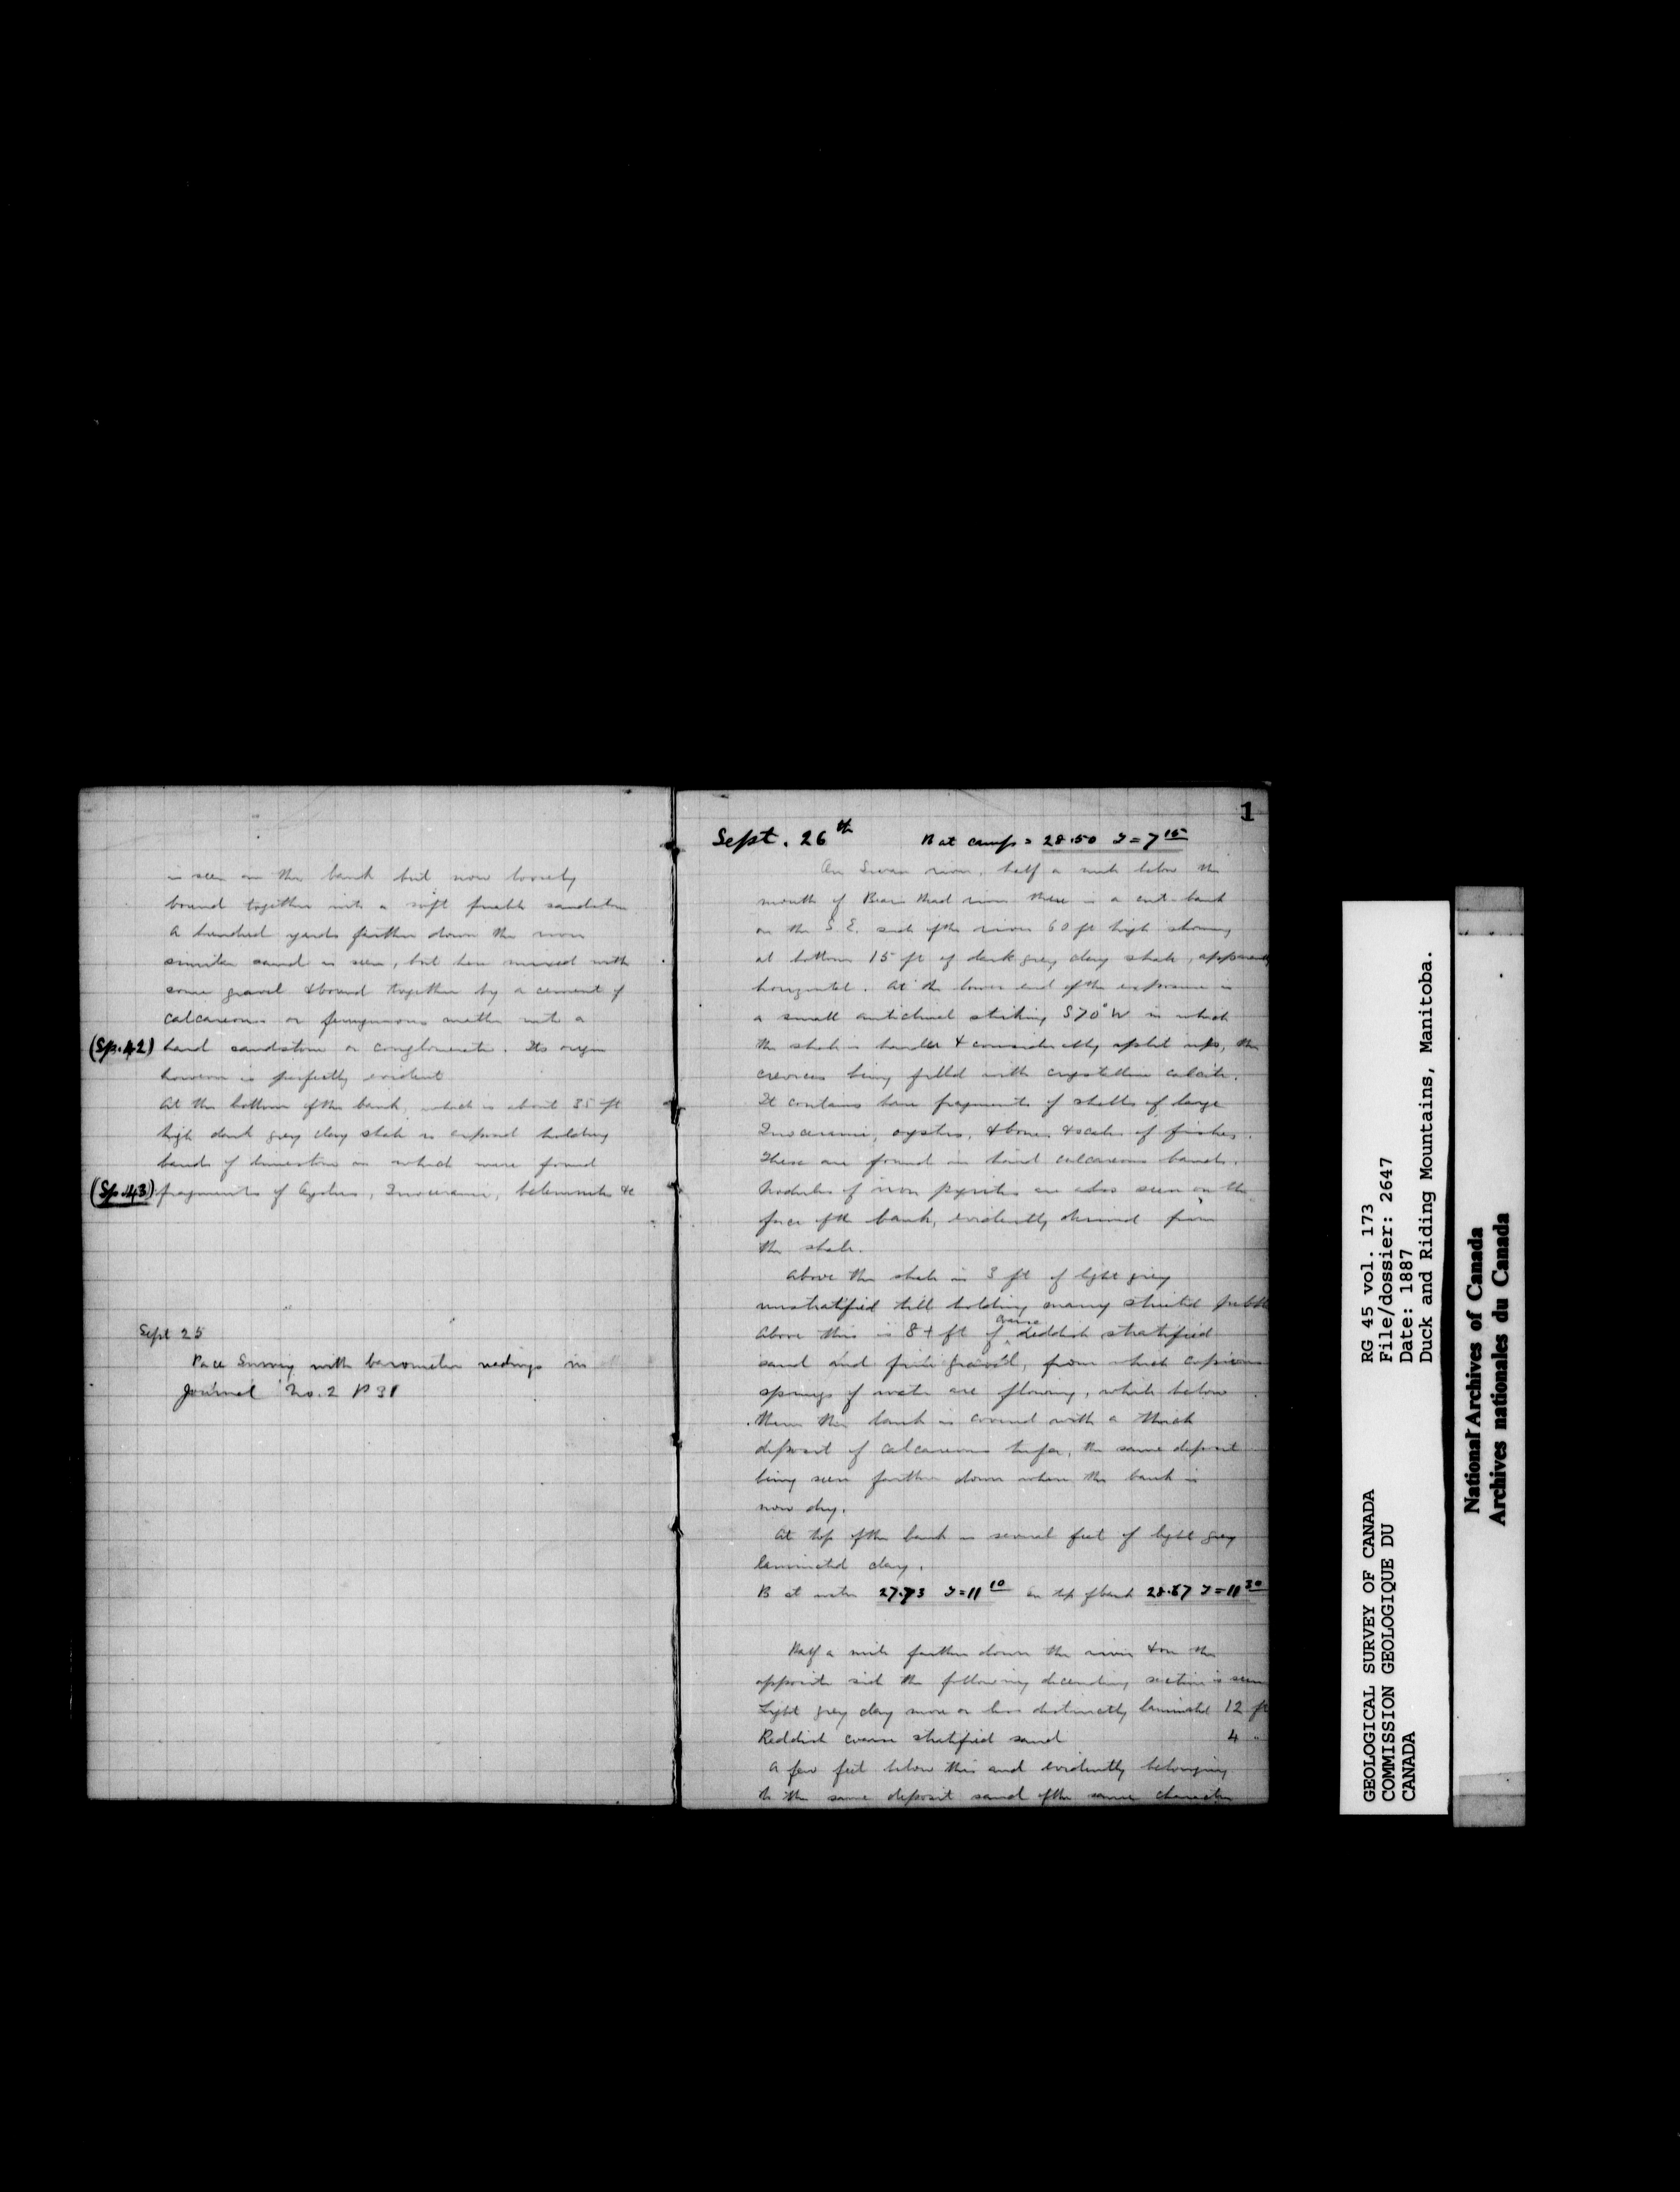 is seen on the bank but now loosely
bound together into a soft friable sandstone
A hundred yards farther down the river
similar sand is seen, but here mixed with
some gravel & bound together by a cement of
calcareous or ferruginous matter into a
(Sp. 42) hard sandstone or conglomerate. Its origin
however is perfectly evident
At the bottom of the bank, which is about 35 ft
high dark grey clay shale is exposed holding
bands of limestone in which were found
(Sp. 43) fragments of Oysters, Inocerami, belemnites &c
Sept 25
Pace Survey with barometer readings in
Journal No. 2 P 31
1
Sept. 26th B at camp = 28.50 T = 7 15
On Swan river, half a mile below the
mouth of Bear Head river there is a cut bank
on the S.E. side of the river 60 ft high showing
at bottom 15 ft of dark grey clay shale, apparently
horizontal. At the lower end of the exposure is
a small anticlinal striking S70°W in which
the shale is harder & considerably split up, the
crevices being filled with crystalline calcite.
It contains here fragments of shells of large
Inocerami, oysters, & bones & scales of fishes.
These are found in hard calcareous bands.
Nodules of iron pyrites are also seen on the
face of the bank, evidently derived from
the shale.
Above the shale is 3 ft of light grey
unstratified till holding many striated pebbles
Above this is 8+ ft of coarse reddish stratified
sand and fine gravel, from which copious
springs of water are flowing, while below
them the bank is covered with a thick
deposit of calcareous tufa, the same deposit
being seen farther down where the bank is
now dry.
At top of the bank is several feet of light grey
laminated clay.
B at water 27.73 T = 11 10 on top of bank 28.67 T = 11 30
Half a mile farther down the river & on the
opposite side the following descending section is seen
Light grey clay more or less distinctly laminated 12 ft
Reddish coarse stratified sand 4 "
A few feet below this and evidently belonging
to the same deposit sand of the same character
GEOLOGICAL SURVEY OF CANADA
COMMISSION GEOLOGIQUE DU
CANADA
RG 45 vol. 173
File/dossier: 2647
Date: 1887
Duck and Riding Mountains, Manitoba.
National Archives of Canada
Archives nationales du Canada